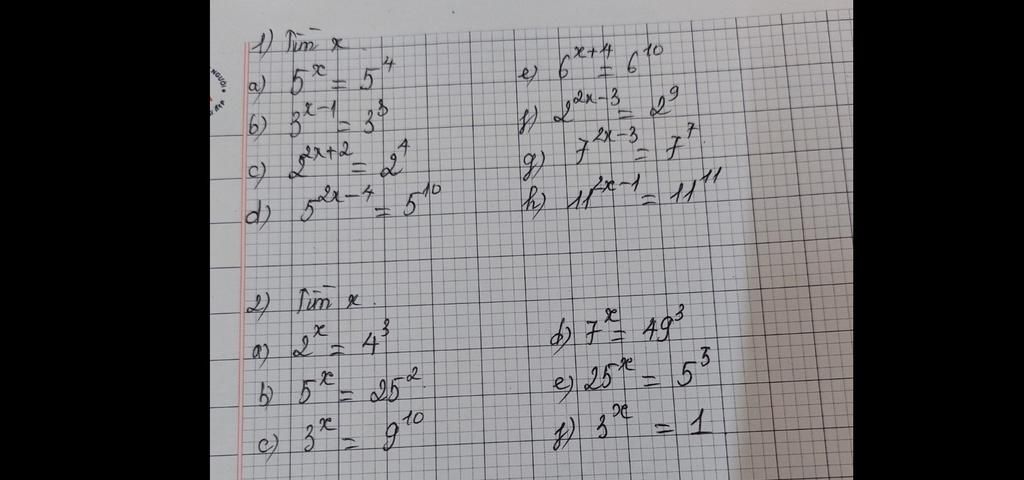 1) Tìm x
a) 5^x = 5^4
b) 3^{x-1} = 3^3
c) 2^{2x+2} = 2^4
d) 5^{2x-4} = 5^{10}
e) 6^{x+4} = 6^{10}
f) 2^{2x-3} = 2^9
g) 7^{2x-3} = 7^7
h) 11^{2x-1} = 11^{11}
2) Tìm x
a) 2^x = 4^3
b) 5^x = 25^2
c) 3^x = 9^{10}
d) 7^x = 49^3
e) 25^x = 5^3
f) 3^x = 1